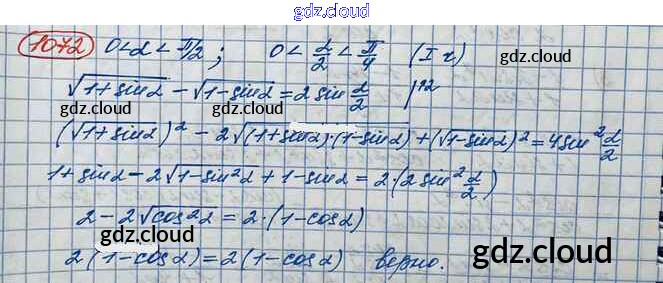 gdz.cloud
1072 0<α<π/2; 0<α/2<π/4 (I ч)
gdz.cloud
√(1+sinα) − √(1−sinα) = 2 sin α/2 |↑2
gdz.cloud gdz.cloud
(√(1+sinα))² − 2√((1+sinα)·(1−sinα)) + (√(1−sinα))² = 4sin² α/2
1+sinα−2√(1−sin²α)+1−sinα = 2·(2sin² α/2)
2−2√(cos²α) = 2·(1−cosα)
gdz.cloud
2(1−cosα) = 2(1−cosα) верно.
gdz.cloud